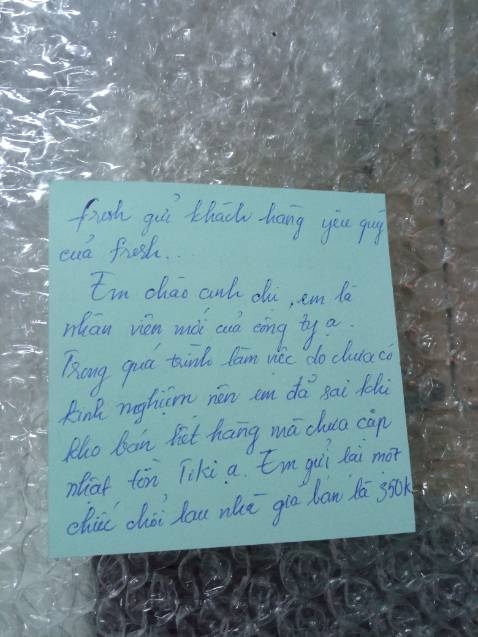 fresh gửi khách hàng yêu quý
của fresh..
Em chào anh chị, em là
nhân viên mới của công ty ạ.
Trong quá trình làm việc do chưa có
kinh nghiệm nên em đã sai khi
kho bán hết hàng mà chưa cập
nhật tồn Tiki ạ. Em gửi lại một
chiếc chổi lau nhà giá bán là 350k